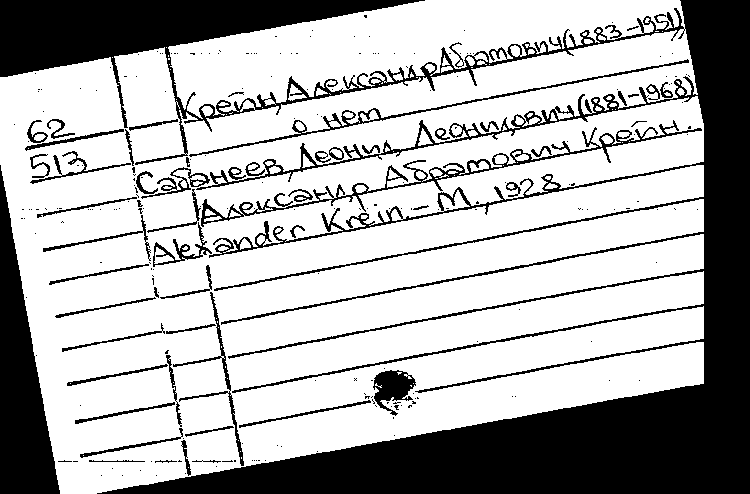 62
513
Крейн, Александр Абрамович (1883-1951)
о нем
Сабанеев, Леонид Леонидович (1881-1968)
Александр Абрамович Крейн.
Alexander Krein. - М., 1928.